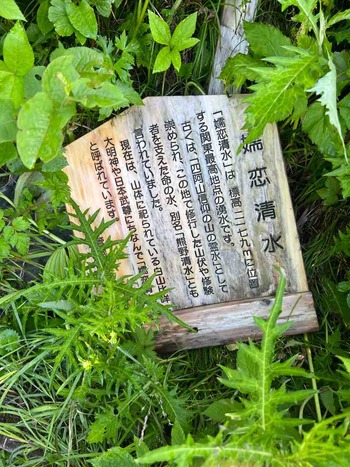 嬬恋清水
「嬬恋清水」は、標高二二七九mに位置
する関東最高地点の湧水です。
古くは、「四阿山信仰の山の霊水」として
崇められ、この地で修行した山伏や修験
者を支えた命の水、別名「熊野清水」とも
言われていました。
現在は、山体に祀られている白山
大明神や日本武尊にちなんで「嬬
と呼ばれています。